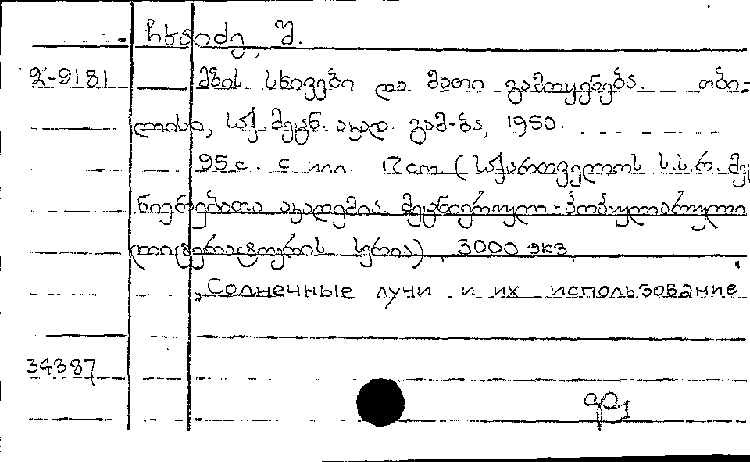 ჩხაიძე, შ.
2-9181 მზის სხივები და მათი გამოყენება. თბი-
ლისი, საქ. მეცნ. აკად. გამ-ბა, 1950.
95 с. с илл. 17 см (საქართველოს ს.ს.რ. მეც
ნიერებათა აკადემია. მეცნიერულ-პოპულარული
ლიტერატურის სერია) 3000 экз.
Солнечные лучи и их использование
34387